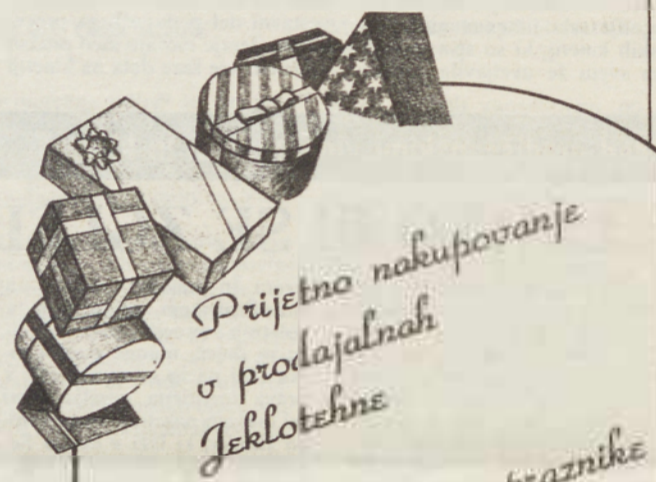 Prijetno nakupovanje
v prodajalnah
Jeklotehne
praznike